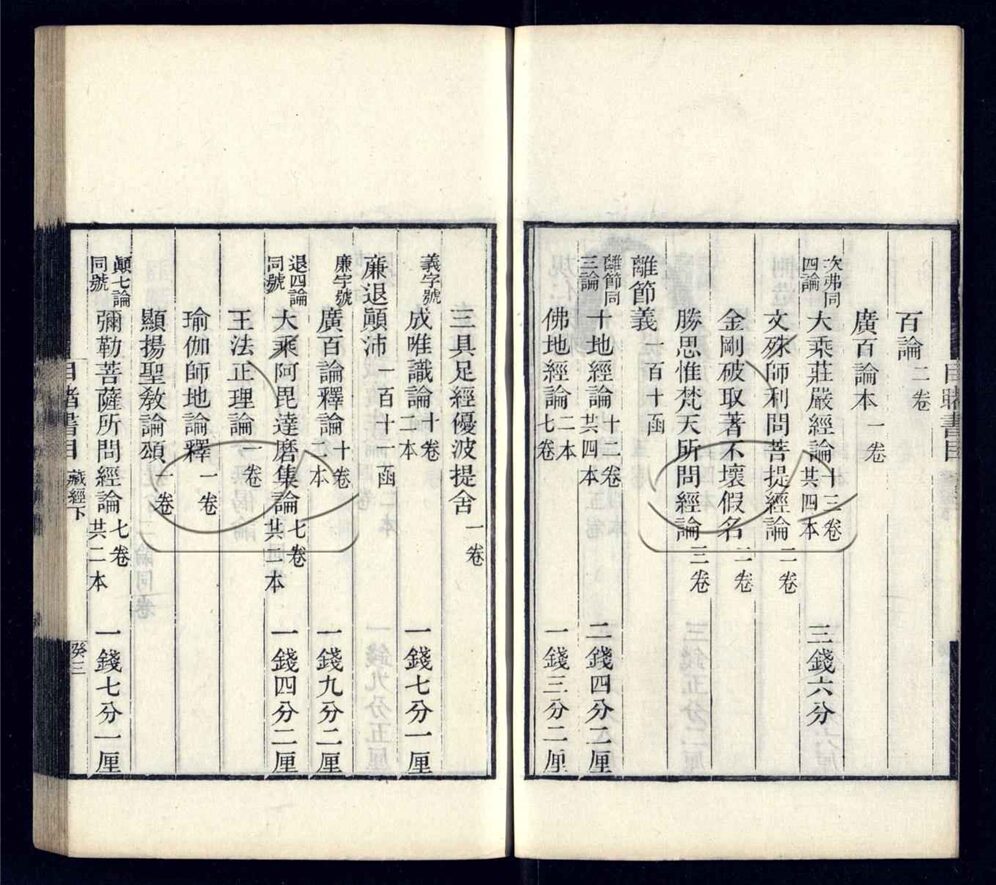 百論二卷
廣百論本一卷
次弗同四論 大乘莊嚴經論十三卷共四本 三錢六分
文殊師利問菩提經論二卷
金剛破取著不壞假名二卷
勝思惟梵天所問經論三卷
離節義一百十函
離節同三論 十地經論十二卷共四本 二錢四分二厘
佛地經論七卷二本 一錢三分二厘
三具足經優波提舍一卷
義字號 成唯識論十卷二本 一錢七分一厘
廉退顛沛一百十一函
廉字號 廣百論釋論十卷二本 一錢九分二厘
退四論同號 大乘阿毘達磨集論七卷共二本 一錢四分二厘
王法正理論一卷
瑜伽師地論釋一卷
顯揚聖教論頌一卷
顛七論同號 彌勒菩薩所問經論七卷共二本 一錢七分一厘
書目 藏經下 癸三